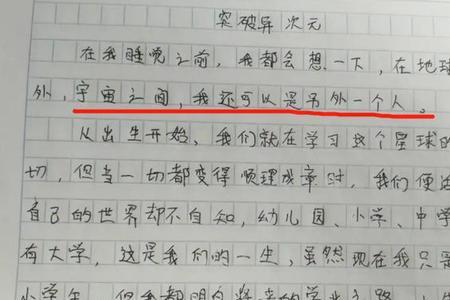 突破异次元
在我睡觉之前，我都会想一下，在地球
外，宇宙之间，我还可以是另外一个人。
从出生开始，我们就在学习这个星球的
切，但当一切都变得顺理成章时，我们便
自己的世界却不自知，幼儿园、小学、中学
有大学，这是我们的一生，虽然现在我只是
小学生，但我都明白将来的学业之路